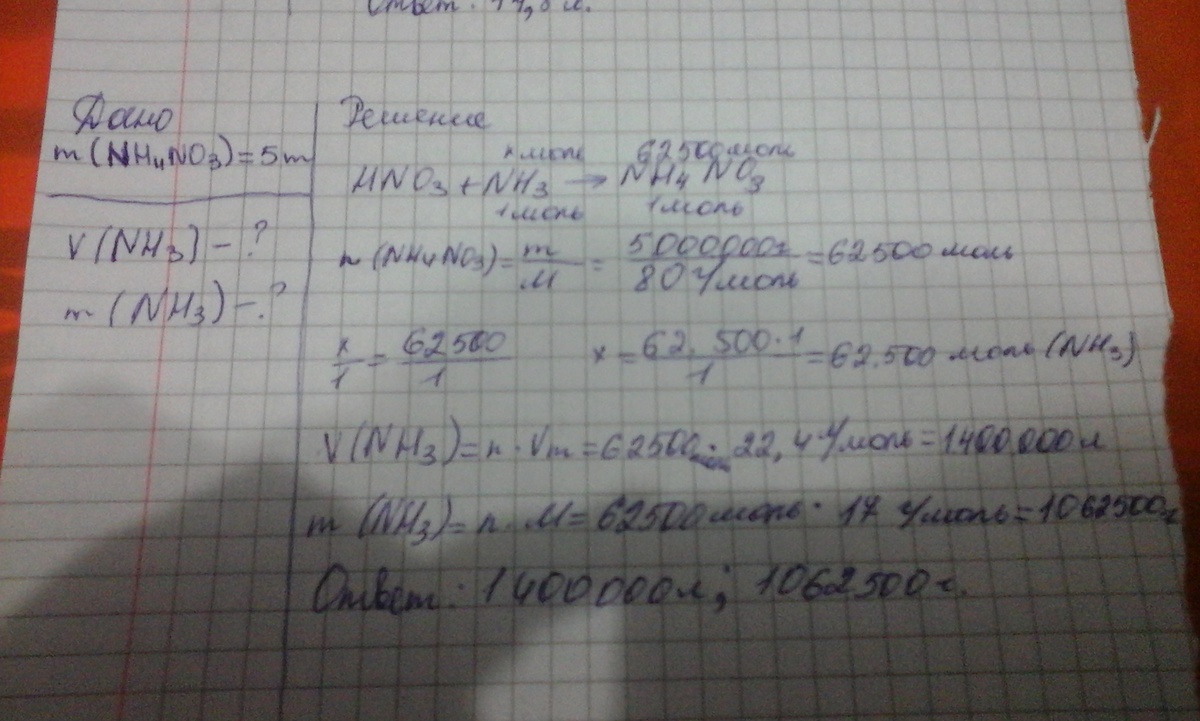 Ответ: 
Дано
m (NH4NO3) = 5т
V (NH3) - ?
m (NH3) - ?
Решение
x моль 62500 моль
HNO3 + NH3 → NH4NO3
1 моль 1 моль
n (NH4NO3) = m/M = 5000000г/80 г/моль = 62500 моль
x/1 = 62500/1 x = 62.500·1/1 = 62.500 моль (NH3)
V (NH3) = n · Vm = 62500 моль · 22,4 л/моль = 1400000 л
m (NH3) = n · M = 62500 моль · 17 г/моль = 1062500г
Ответ: 1400000л; 1062500г.